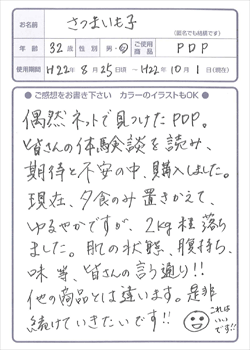 お名前 さつまいも子
(匿名でも結構です)
年齢 32歳 性別 男・女 ご使用商品 PDP
使用期間 H22年8月25日頃 ~ H22年10月1日(現在)
●ご感想をお書き下さい カラーのイラストもOK●
偶然ネットで見つけたPDP。
皆さんの体験談を読み、
期待と不安の中、購入しました。
現在、夕食のみ置きかえて、
ゆるやかですが、2kg程落ち
ました。肌の状態、腹持ち、
味等、皆さんの言う通り!!
他の商品とは違います。是非
続けていきたいです!!
これはいいです!!